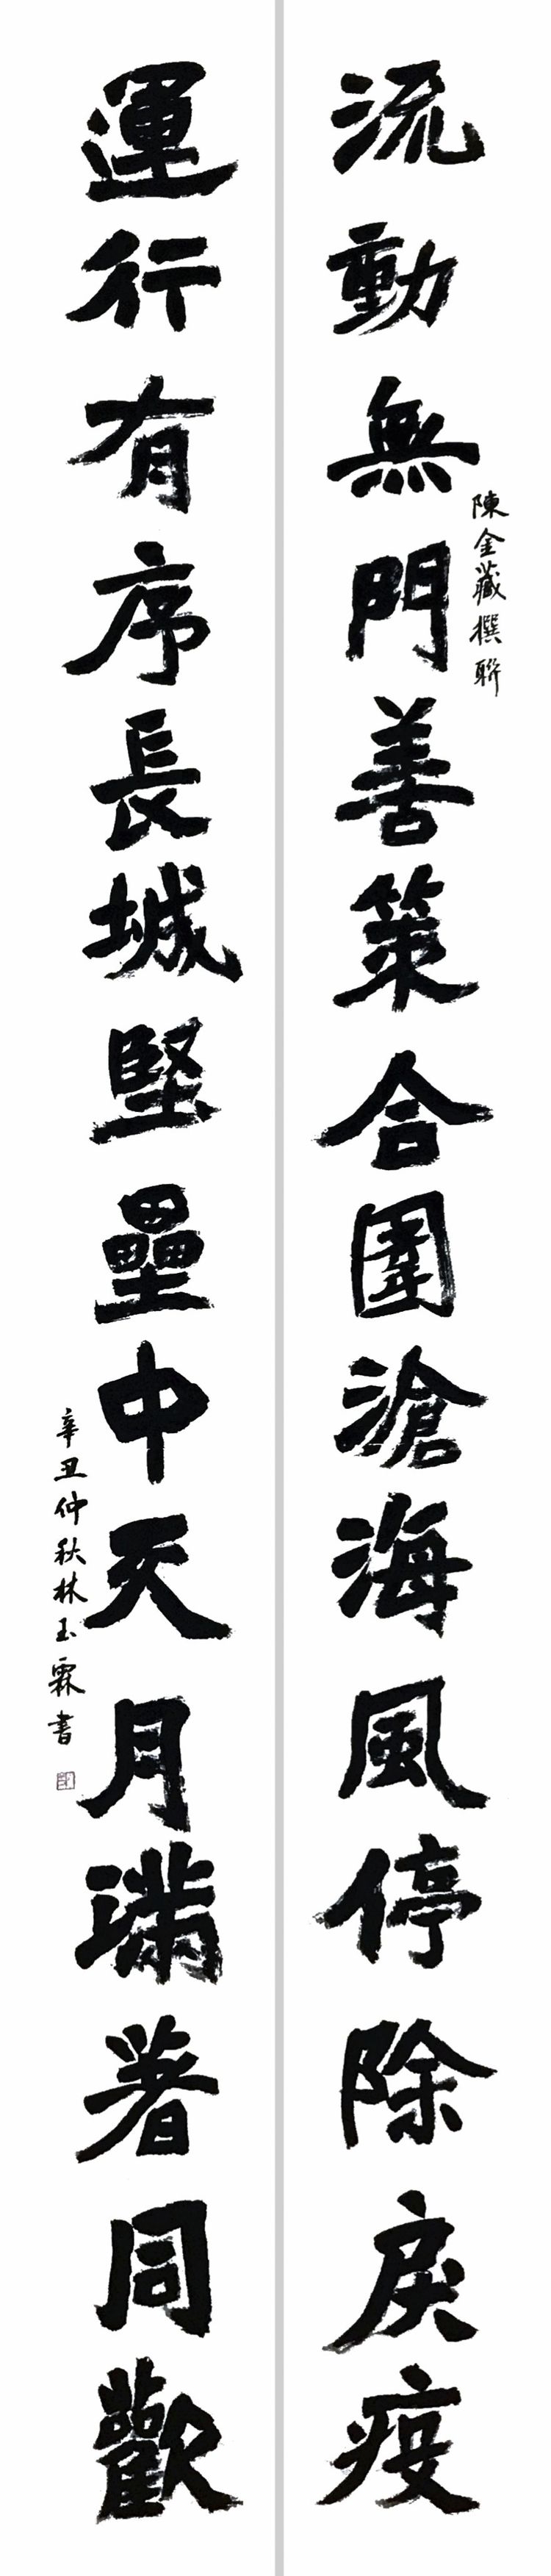 流動無門善策合圍滄海風停除戾疫
陳金藏撰聯
運行有序長城堅壘中天月滿著同歡
辛丑仲秋林玉霖書